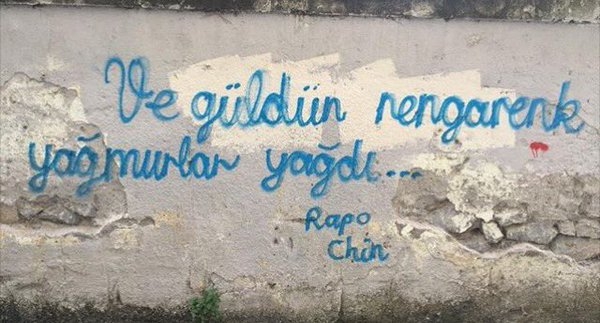 Ve güldün rengarenk
yağmurlar yağdı...
Rapo
Chin